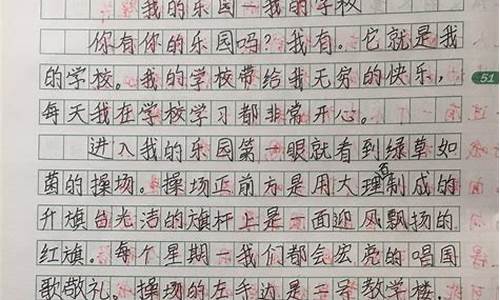 我的乐园—我的学校
你有你的乐园吗?我有。它就是我
的学校。我的学校带给我无穷的快乐,
每天我在学校学习都非常开心。
进入我的乐园第一眼就看到绿草如
菌的操场:操场正前方是用大理石制成的
升旗台光洁的旗杆上是一面迎风飘扬的
红旗。每个星期一我们都会宏亮的唱国
歌敬礼。操场的左手边是二号教学楼,
51